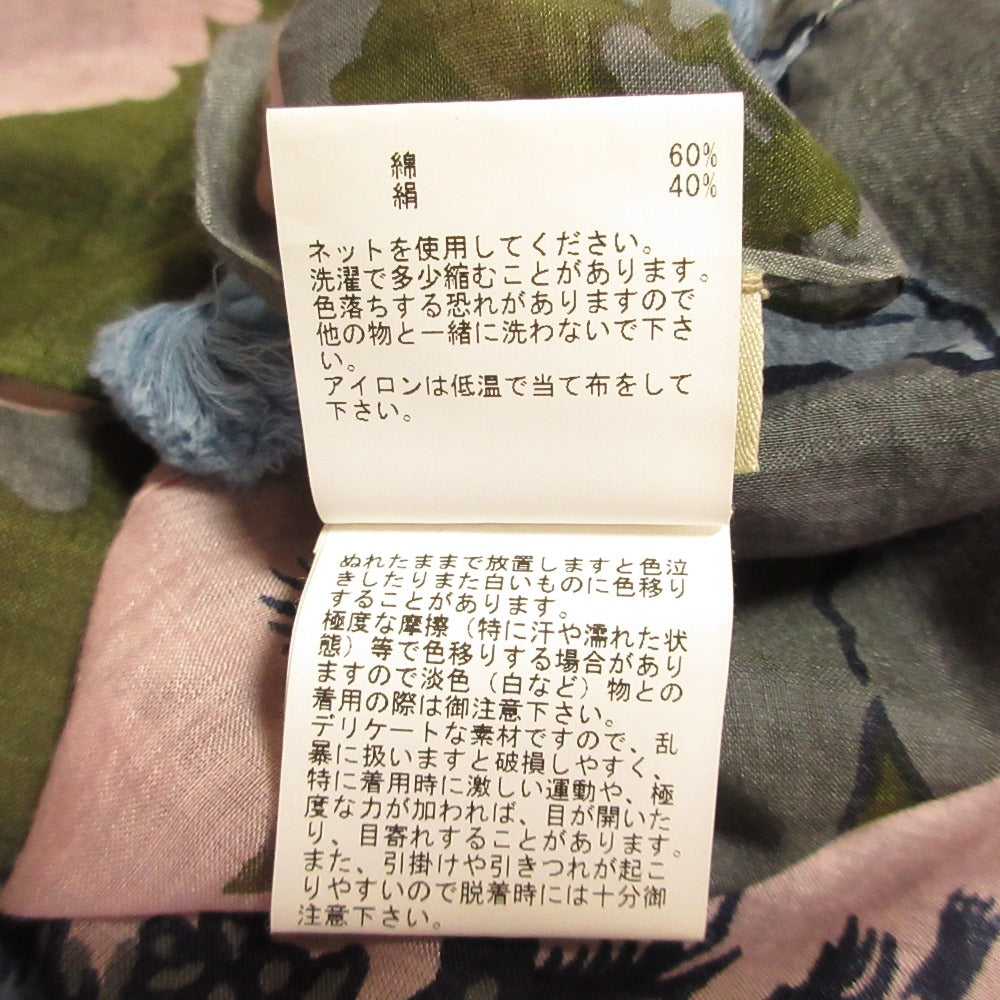 綿 60%
絹 40%
ネットを使用してください。
洗濯で多少縮むことがあります。
色落ちする恐れがありますので
他の物と一緒に洗わないで下さ
い。
アイロンは低温で当て布をして
下さい。
ぬれたままで放置しますと色泣
きしたりまた白いものに色移り
することがあります。
極度な摩擦（特に汗や濡れた状
態）等で色移りする場合があり
ますので淡色（白など）物との
着用の際は御注意下さい。
デリケートな素材ですので、乱
暴に扱いますと破損しやすく、
特に着用時に激しい運動や、極
度な力が加われば、目が開いた
り、目寄れすることがあります。
また、引掛けや引きつれが起こ
りやすいので脱着時には十分御
注意下さい。